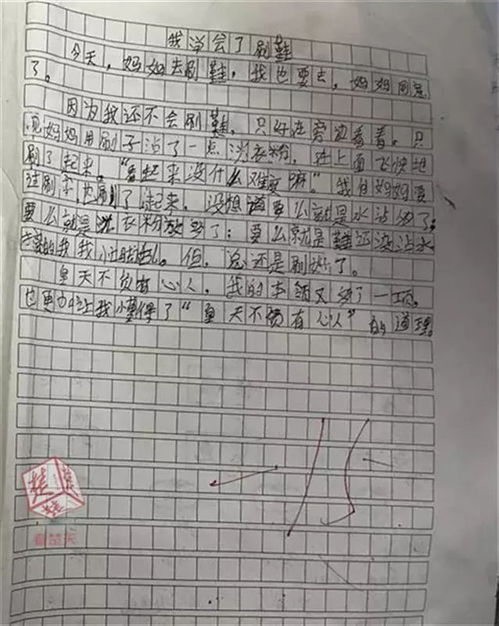 我学会了刷鞋
今天，妈妈去刷鞋，我也要去，妈妈同意
了。
因为我还不会刷鞋，只好在旁边看看。只
见妈妈用刷子沾了一点洗衣粉，在上面飞快地
刷了起来。“看起来没什么难度嘛。”我向妈妈要
过刷子，也刷了起来。没想道要么就是水沾多了；
要么就是洗衣粉放多了；要么就是鞋还没沾水
的我
皇天不负有心人，我的本领又多了一项。
也更加让我懂得了“皇天不负有心人”的道理。
看楚天